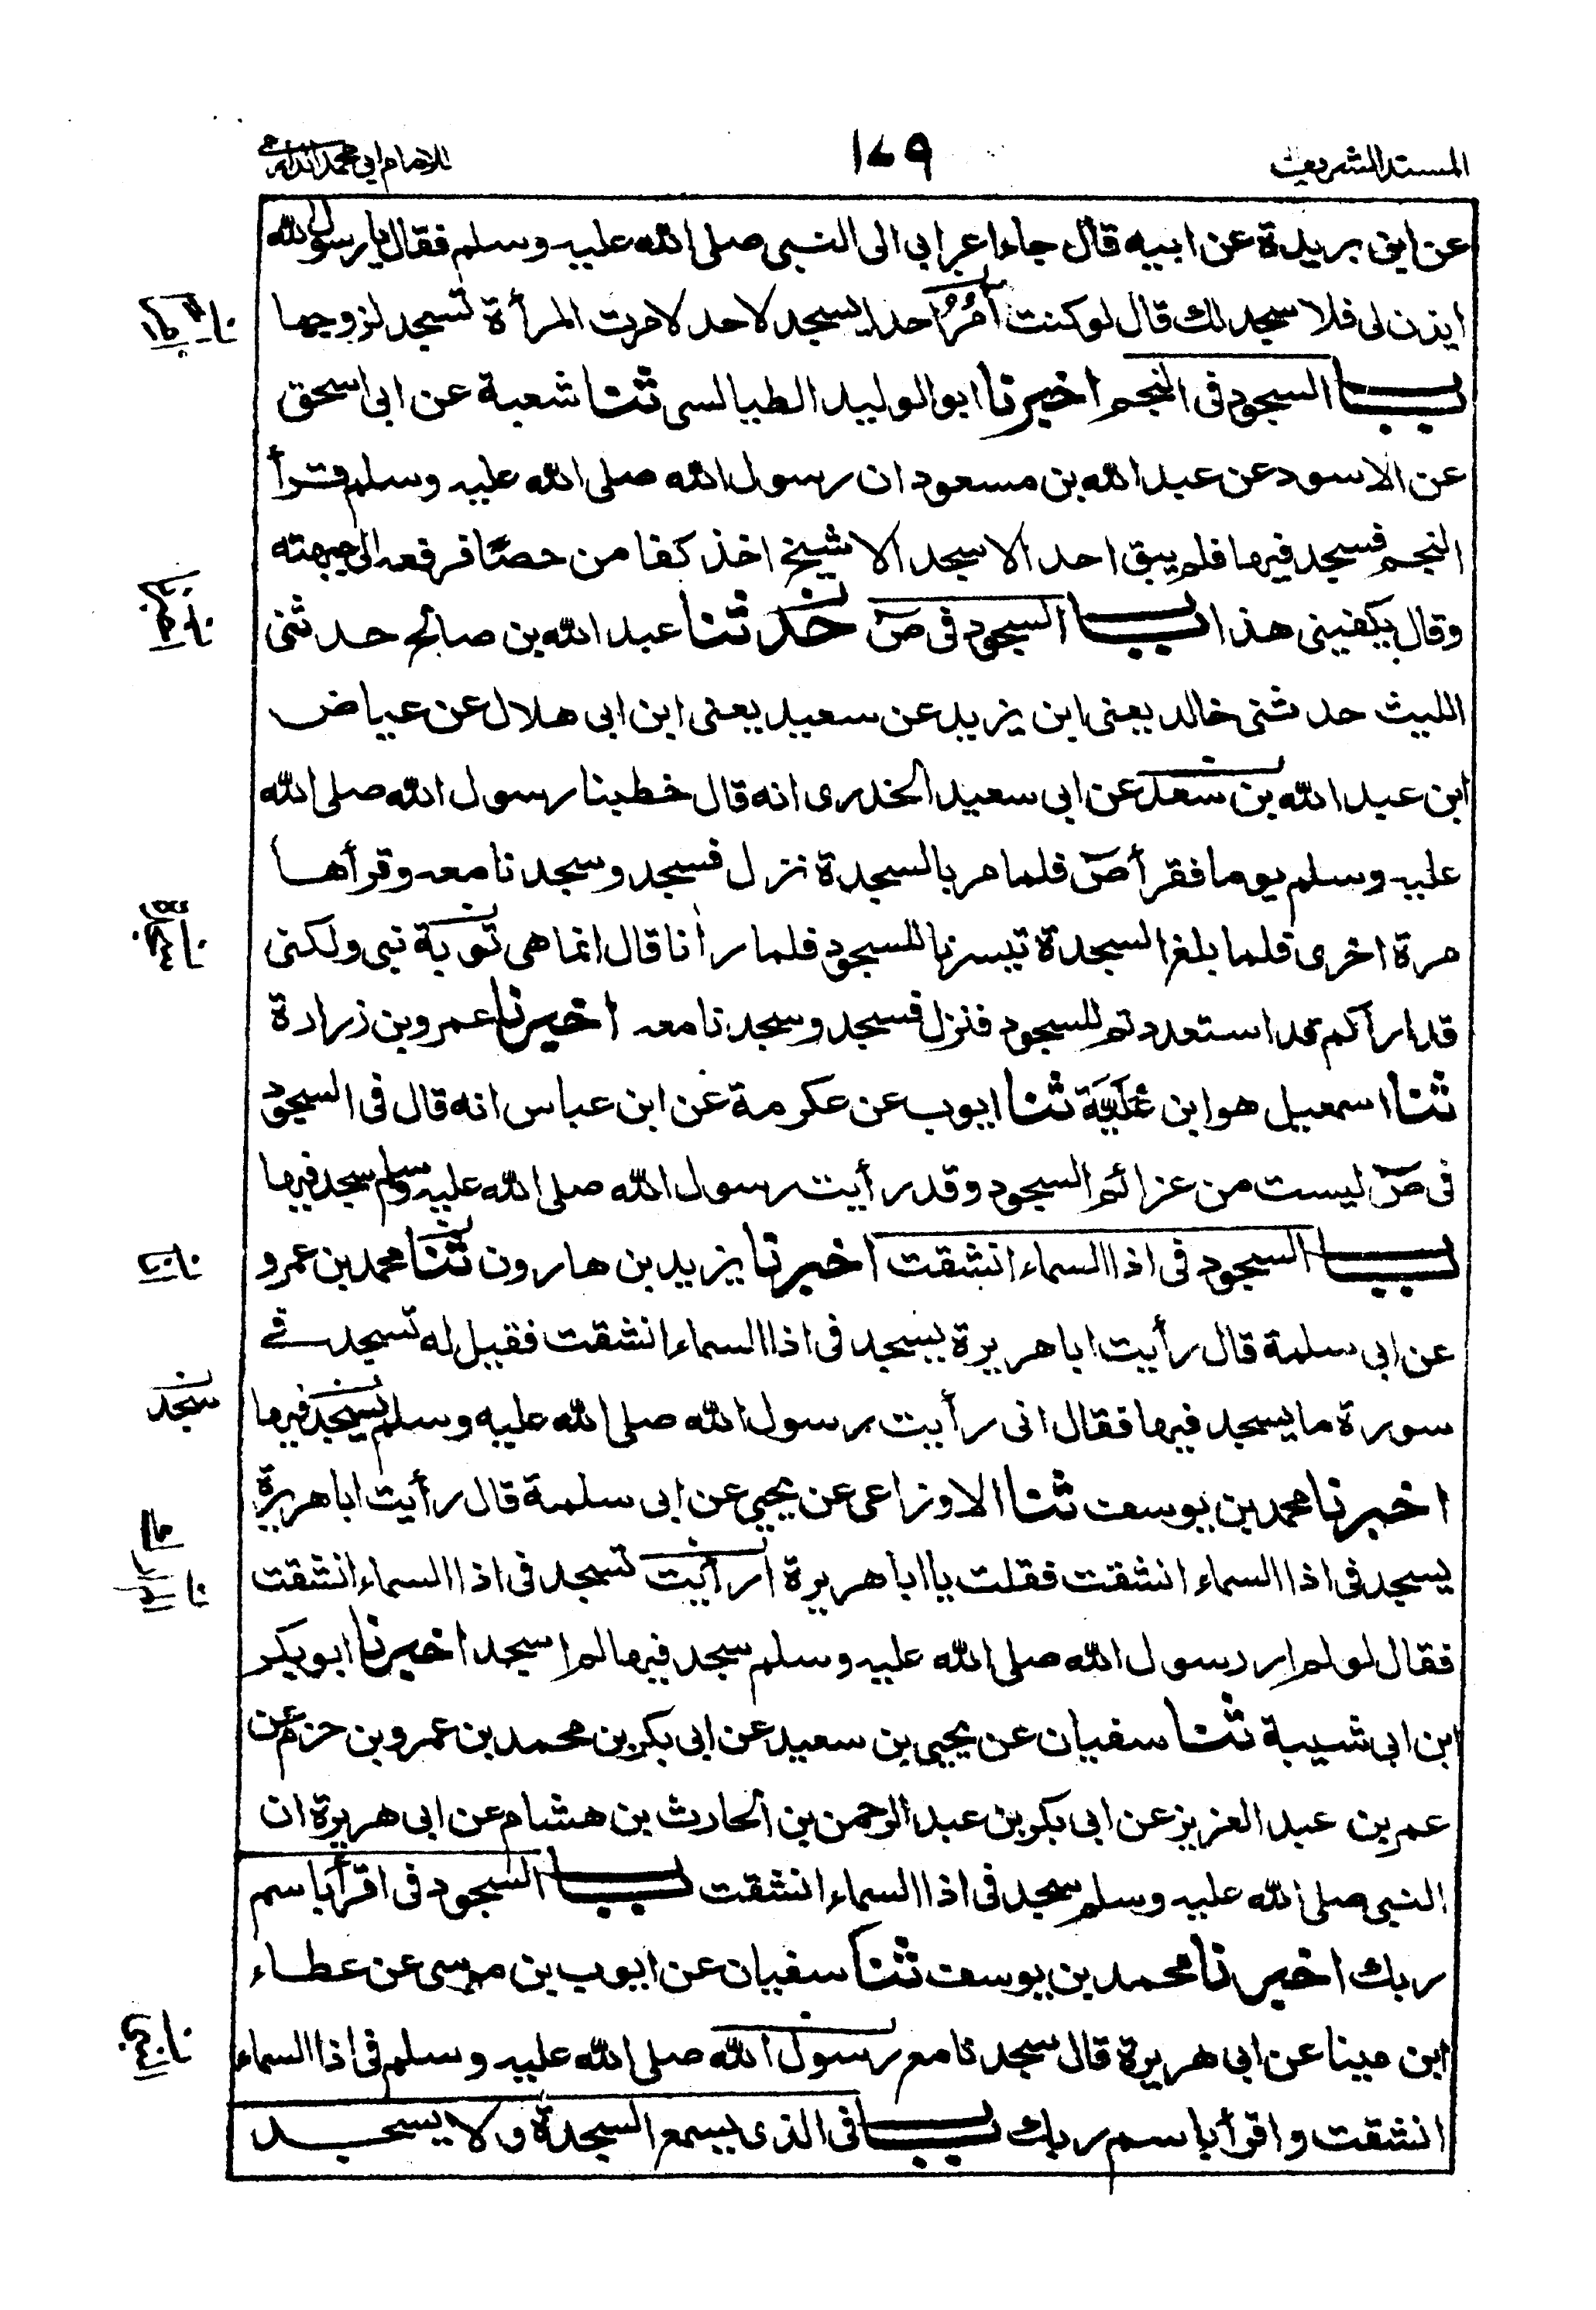 المسند الشريف ١٧٩ للامام ابي محمد الدارمي
عن ابن بريدة عن ابيه قال جاء اعرابي الى النبي صلى الله عليه وسلم فقال يا رسول الله
ايذن لى فلاسجد لك قال لو كنت اٰمُرُ احدا يسجد لاحد لامرت المرأة تسجد لزوجها
باب السجود فى النجم اخبرنا ابو الوليد الطيالسى ثنا شعبة عن ابى اسحق
عن الاسود عن عبد الله بن مسعود ان رسول الله صلى الله عليه وسلم قرأ
النجم فسجد فيها فلم يبق احد الا سجد الا شيخ اخذ كفا من حصًا فرفعه الى جبهته
وقال يكفينى هذا باب السجود فى صٓ حدثنا عبد الله بن صالح حدثنى
الليث حدثنى خالد يعنى ابن يزيد عن سعيد يعنى ابن ابى هلال عن عياض
ابن عبد الله بن سعد عن ابى سعيد الخدرى انه قال خطبنا رسول الله صلى الله
عليه وسلم يوما فقرأ صٓ فلما مر بالسجدة نزل فسجد وسجدنا معه وقرأها
مرة اخرى فلما بلغ السجدة تيسرنا للسجود فلما رأنا قال انما هى توبة نبى ولكنى
قد اراكم قد استعددتم للسجود فنزل فسجد وسجدنا معه اخبرنا عمرو بن زرارة
ثنا اسمعيل هو ابن عُلَيَّة ثنا ايوب عن عكرمة عن ابن عباس انه قال فى السجود
فى صٓ ليست من عزائم السجود وقد رأيت رسول الله صلى الله عليه وسلم سجد فيها
باب السجود فى اذا السماء انشقت اخبرنا يزيد بن هارون ثنا محمد بن عمرو
عن ابى سلمة قال رأيت ابا هريرة يسجد فى اذا السماء انشقت فقيل له تسجد فى
سورة ما يسجد فيها فقال انى رأيت رسول الله صلى الله عليه وسلم يسجد فيها
سجد
اخبرنا محمد بن يوسف ثنا الاوزاعى عن يحيى عن ابى سلمة قال رأيت ابا هريرة
يسجد فى اذا السماء انشقت فقلت يا ابا هريرة ارأيت تسجد فى اذا السماء انشقت
فقال لو لم ار رسول الله صلى الله عليه وسلم سجد فيها لم اسجد اخبرنا ابو بكر
ابن ابى شيبة ثنا سفيان عن يحيى بن سعيد عن ابى بكر بن محمد بن عمرو بن حزم عن
عمر بن عبد العزيز عن ابى بكر بن عبد الرحمن بن الحارث بن هشام عن ابى هريرة ان
النبى صلى الله عليه وسلم سجد فى اذا السماء انشقت باب السجود فى اقرأ باسم
ربك اخبرنا محمد بن يوسف ثنا سفيان عن ايوب بن موسى عن عطاء
ابن مينا عن ابى هريرة قال سجدنا مع رسول الله صلى الله عليه وسلم فى اذا السماء
انشقت واقرأ باسم ربك باب فى الذى يسمع السجدة ولا يسجد